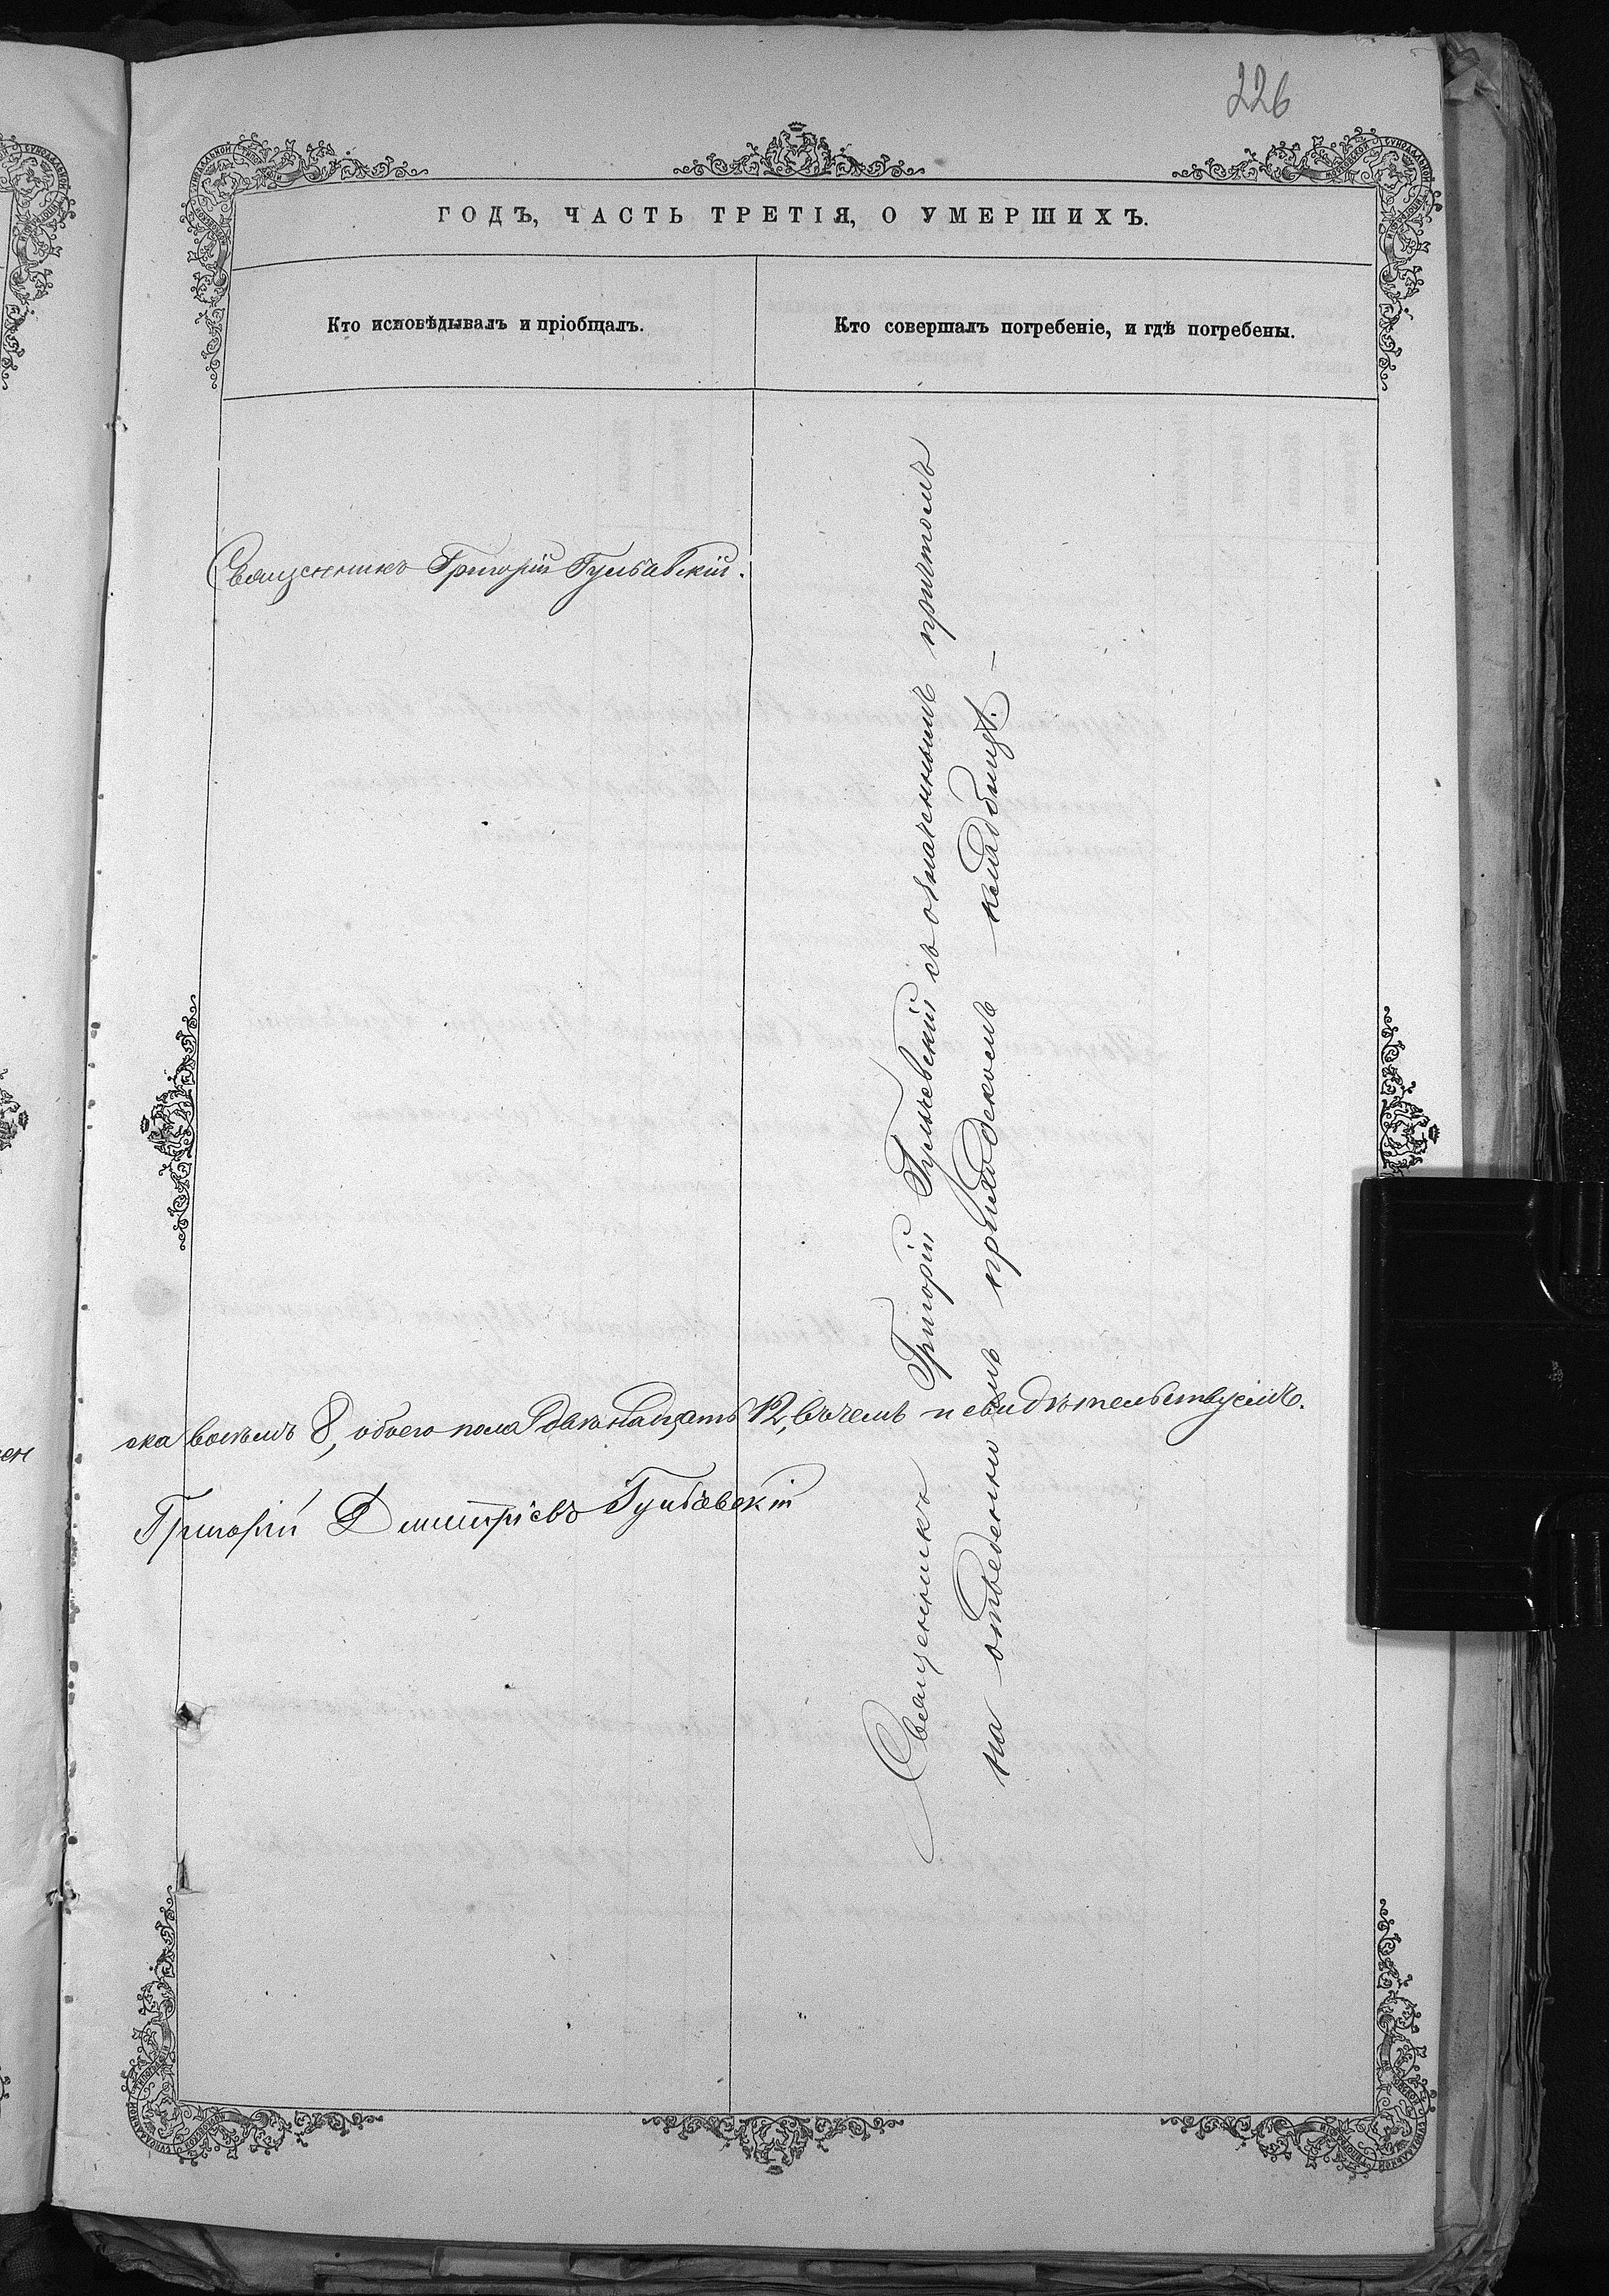 226
ГОДЪ, ЧАСТЬ ТРЕТІЯ, О УМЕРШИХЪ.
Кто исповѣдывалъ и пріобщалъ.
Кто совершалъ погребеніе, и гдѣ погребены.
Священникъ Григорій Гульчевскій.
Священникъ Григорій Гульчевскій съ означеннымъ причтомъ
на отведенномъ приходскомъ кладбищѣ. —
ска восемь 8, обоего пола двѣнадцать 12, въ чемъ и свидѣтельствуемъ.
Григорій Димитріевъ Гульчевскій